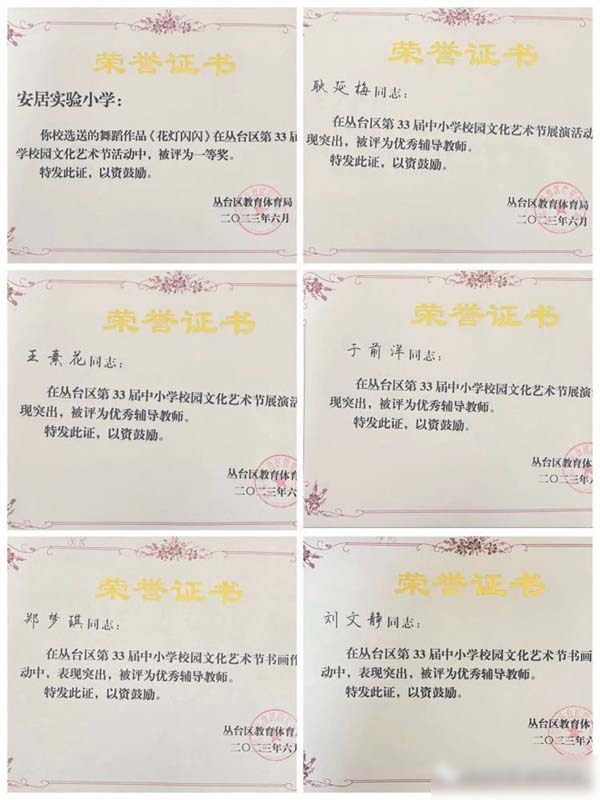 荣誉证书
安居实验小学：
你校选送的舞蹈作品《花灯闪闪》在丛台区第33届
学校园文化艺术节活动中，被评为一等奖。
特发此证，以资鼓励。
丛台区教育体育局
二〇二三年六月
荣誉证书
耿延梅同志：
在丛台区第33届中小学校园文化艺术节展演活动
现突出，被评为优秀辅导教师。
特发此证，以资鼓励。
丛台区教育体育局
二〇二三年六月
荣誉证书
王素花同志：
在丛台区第33届中小学校园文化艺术节展演活
现突出，被评为优秀辅导教师。
特发此证，以资鼓励。
丛台区教育体育
二〇二三年六
荣誉证书
于前洋同志：
在丛台区第33届中小学校园文化艺术节展演
现突出，被评为优秀辅导教师。
特发此证，以资鼓励。
丛台区教育体育
二〇二三年六
荣誉证书
郑梦琪同志：
在丛台区第33届中小学校园文化艺术节书画作
动中，表现突出，被评为优秀辅导教师。
特发此证，以资鼓励。
丛台区教育体育
二〇二三年六月
荣誉证书
刘文静同志：
在丛台区第33届中小学校园文化艺术节书画
动中，表现突出，被评为优秀辅导教师。
特发此证，以资鼓励。
丛台区教育体育
二〇二三年六